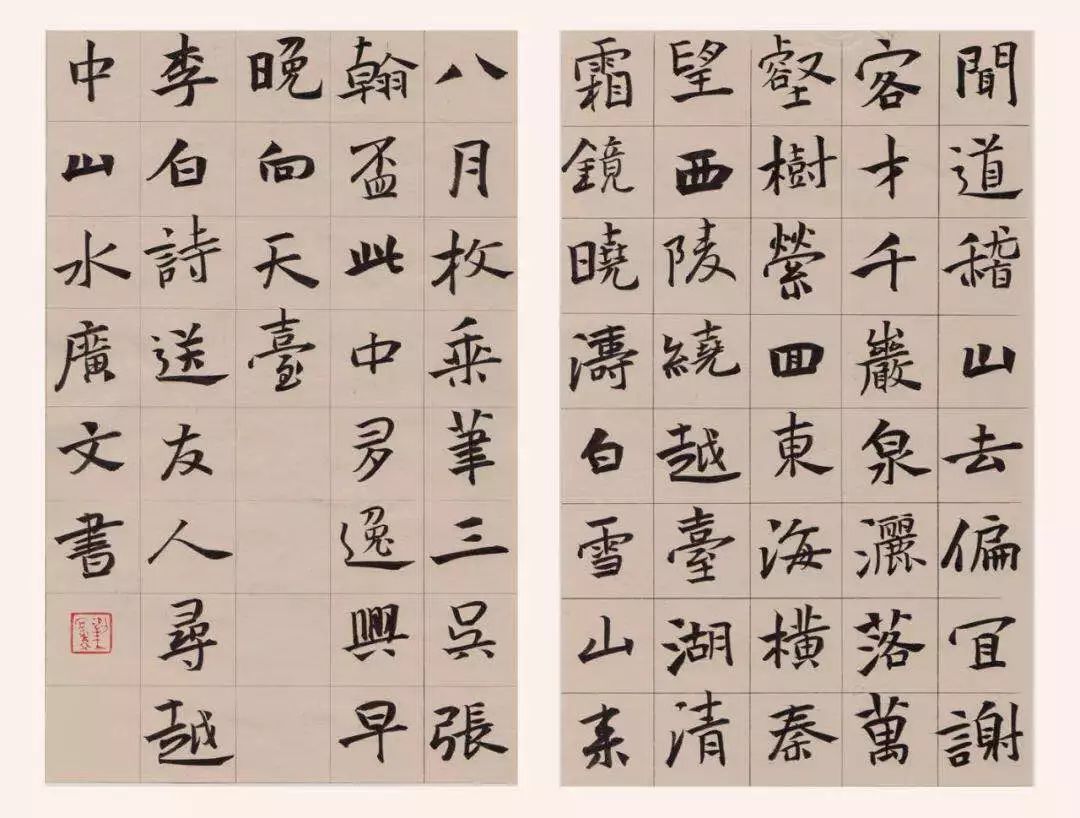 聞道稽山去偏宜謝
客才千巖泉灑落萬
壑樹縈回東海橫秦
望西陵繞越臺湖清
霜鏡曉濤白雪山來
八月枚乘筆三吳張
翰盃此中多逸興早
晚向天臺
李白詩送友人尋越
中山水廣文書